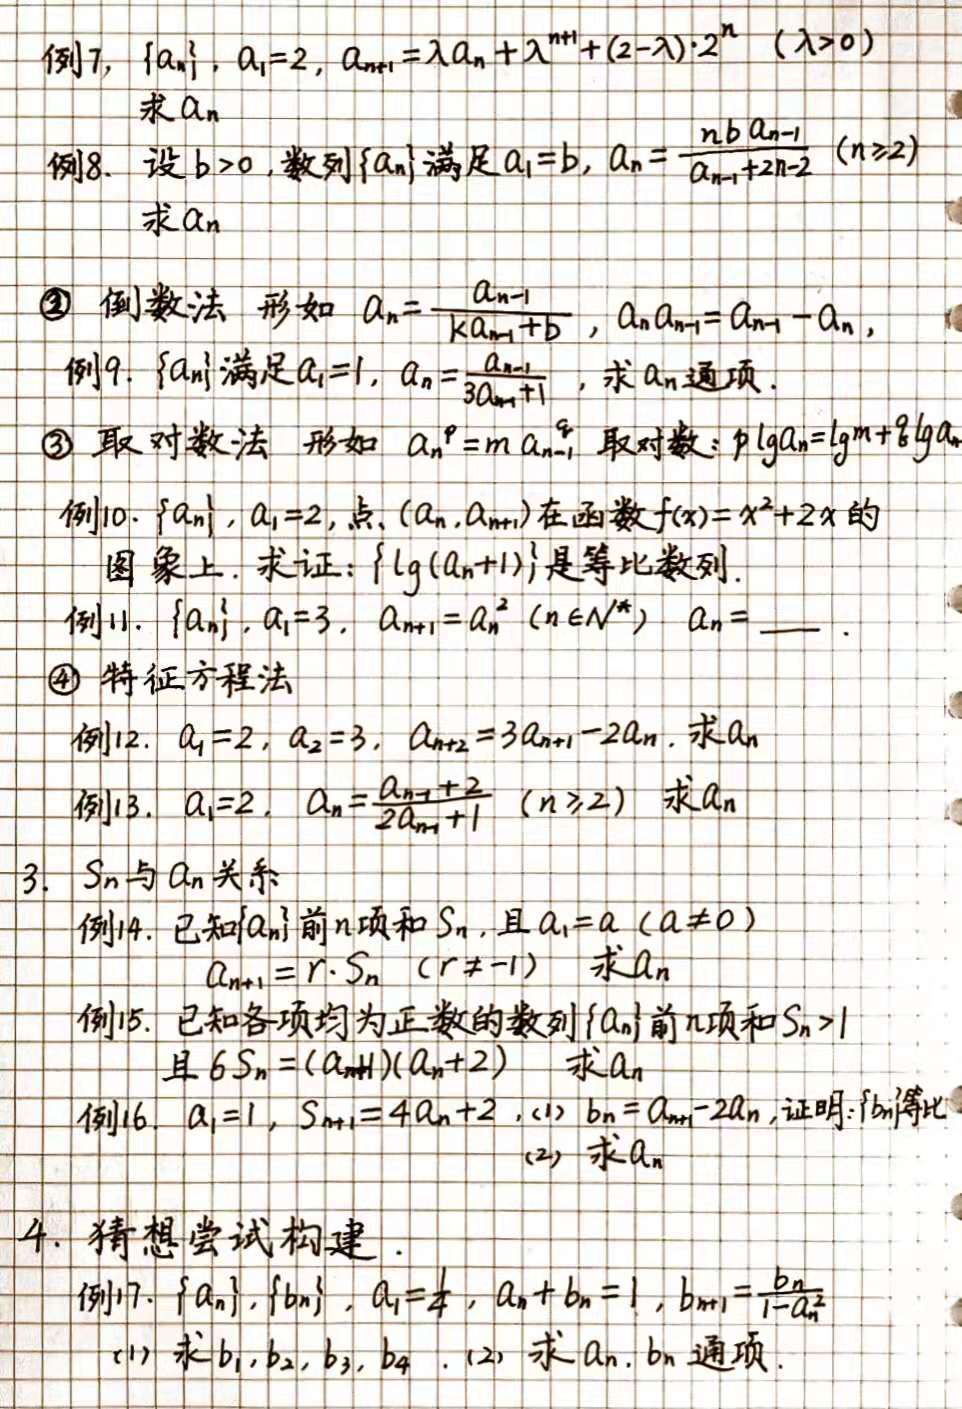 例7, {aₙ}, a₁=2, aₙ₊₁=λaₙ+λⁿ⁺¹+(2-λ)·2ⁿ (λ>0)
求aₙ
例8. 设b>0,数列{aₙ}满足a₁=b, aₙ=nbaₙ₋₁/(aₙ₋₁+2n-2) (n≥2)
求aₙ
② 倒数法 形如 aₙ=aₙ₋₁/(kaₙ₋₁+b), aₙaₙ₋₁=aₙ₋₁-aₙ,
例9. {aₙ}满足a₁=1, aₙ=aₙ₋₁/(3aₙ₋₁+1), 求aₙ通项.
③ 取对数法 形如 aₙᵖ=m aₙ₋₁^q 取对数:plgaₙ=lgm+qlgaₙ
例10. {aₙ}, a₁=2,点(aₙ,aₙ₊₁)在函数f(x)=x²+2x的
图象上. 求证:{lg(aₙ+1)}是等比数列.
例11. {aₙ}, a₁=3, aₙ₊₁=aₙ² (n∈N*) aₙ=___.
④ 特征方程法
例12. a₁=2, a₂=3, aₙ₊₂=3aₙ₊₁-2aₙ. 求aₙ
例13. a₁=2. aₙ=(aₙ₋₁+2)/(2aₙ₋₁+1) (n≥2) 求aₙ
3. Sₙ与aₙ关系
例14. 已知{aₙ}前n项和Sₙ,且a₁=a (a≠0)
aₙ₊₁=r·Sₙ (r≠-1) 求aₙ
例15. 已知各项均为正数的数列{aₙ}前n项和Sₙ>1
且6Sₙ=(aₙ+1)(aₙ+2) 求aₙ
例16. a₁=1, Sₙ₊₁=4aₙ+2,(1) bₙ=aₙ₊₁-2aₙ,证明:{bₙ}等比
(2) 求aₙ
4. 猜想尝试构建.
例17. {aₙ},{bₙ}, a₁=1/4, aₙ+bₙ=1, bₙ₊₁=bₙ/(1-aₙ²)
(1) 求b₁,b₂,b₃,b₄.(2) 求aₙ.bₙ通项.